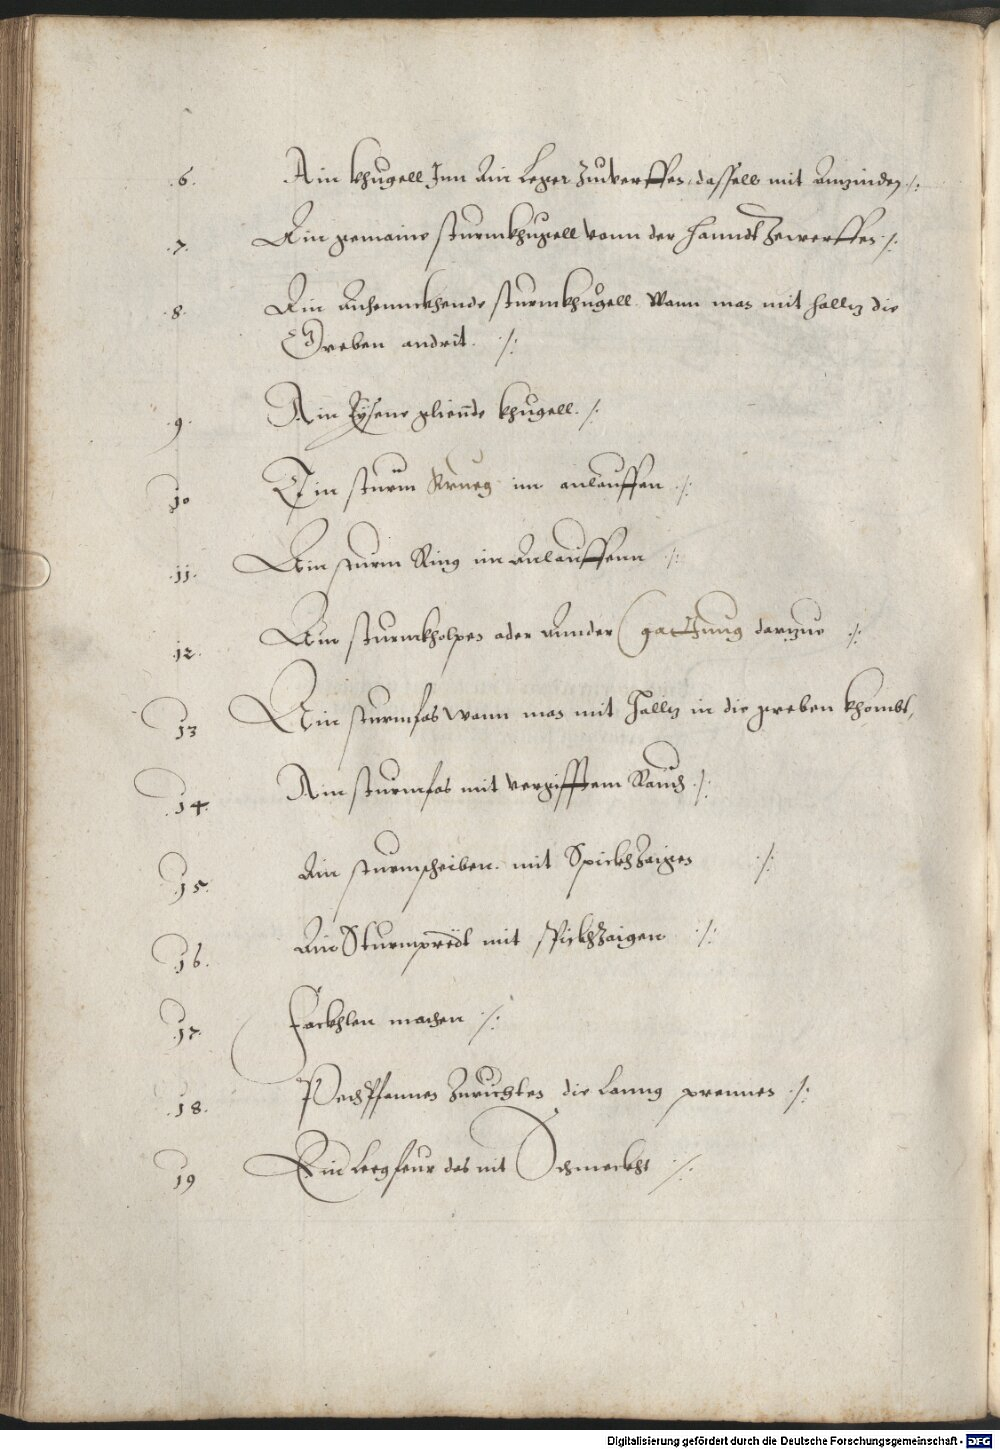 .6. Ain khugell Inn Ain Leger Zuwerffen, dasselb mit Anzinden ./.
.7. Ain gemaine sturmkhugell vonn der hanndt Zewerffen ./.
.8. Ain anhennckhende sturmkhugell Wann man mit hallen die
Greben andrit. ./.
.9. Ain Eysene gliennde khugell ./.
10 Ein sturm Krueg im anlauffen ./.
.11. Ain sturm Ring im Anlauffenn ./.
.12. Ain sturmkholpen oder annder gattung darzue ./.
13 Ain sturmfas wann man mit hallen in die greben khombt,
.14. Ain sturmfas mit vergifftem Rauch ./.
15. Ain sturmscheiben mit SpickhZaigen ./.
16. Ain Sturmpredt mit spickhZaigen ./.
17. Fackhlen machen ./.
.18. PechPfannen Zurichten die lanng prennen ./.
19 Ein legfeur das nit Schmeckht ./.
Digitalisierung gefördert durch die Deutsche Forschungsgemeinschaft - DFG